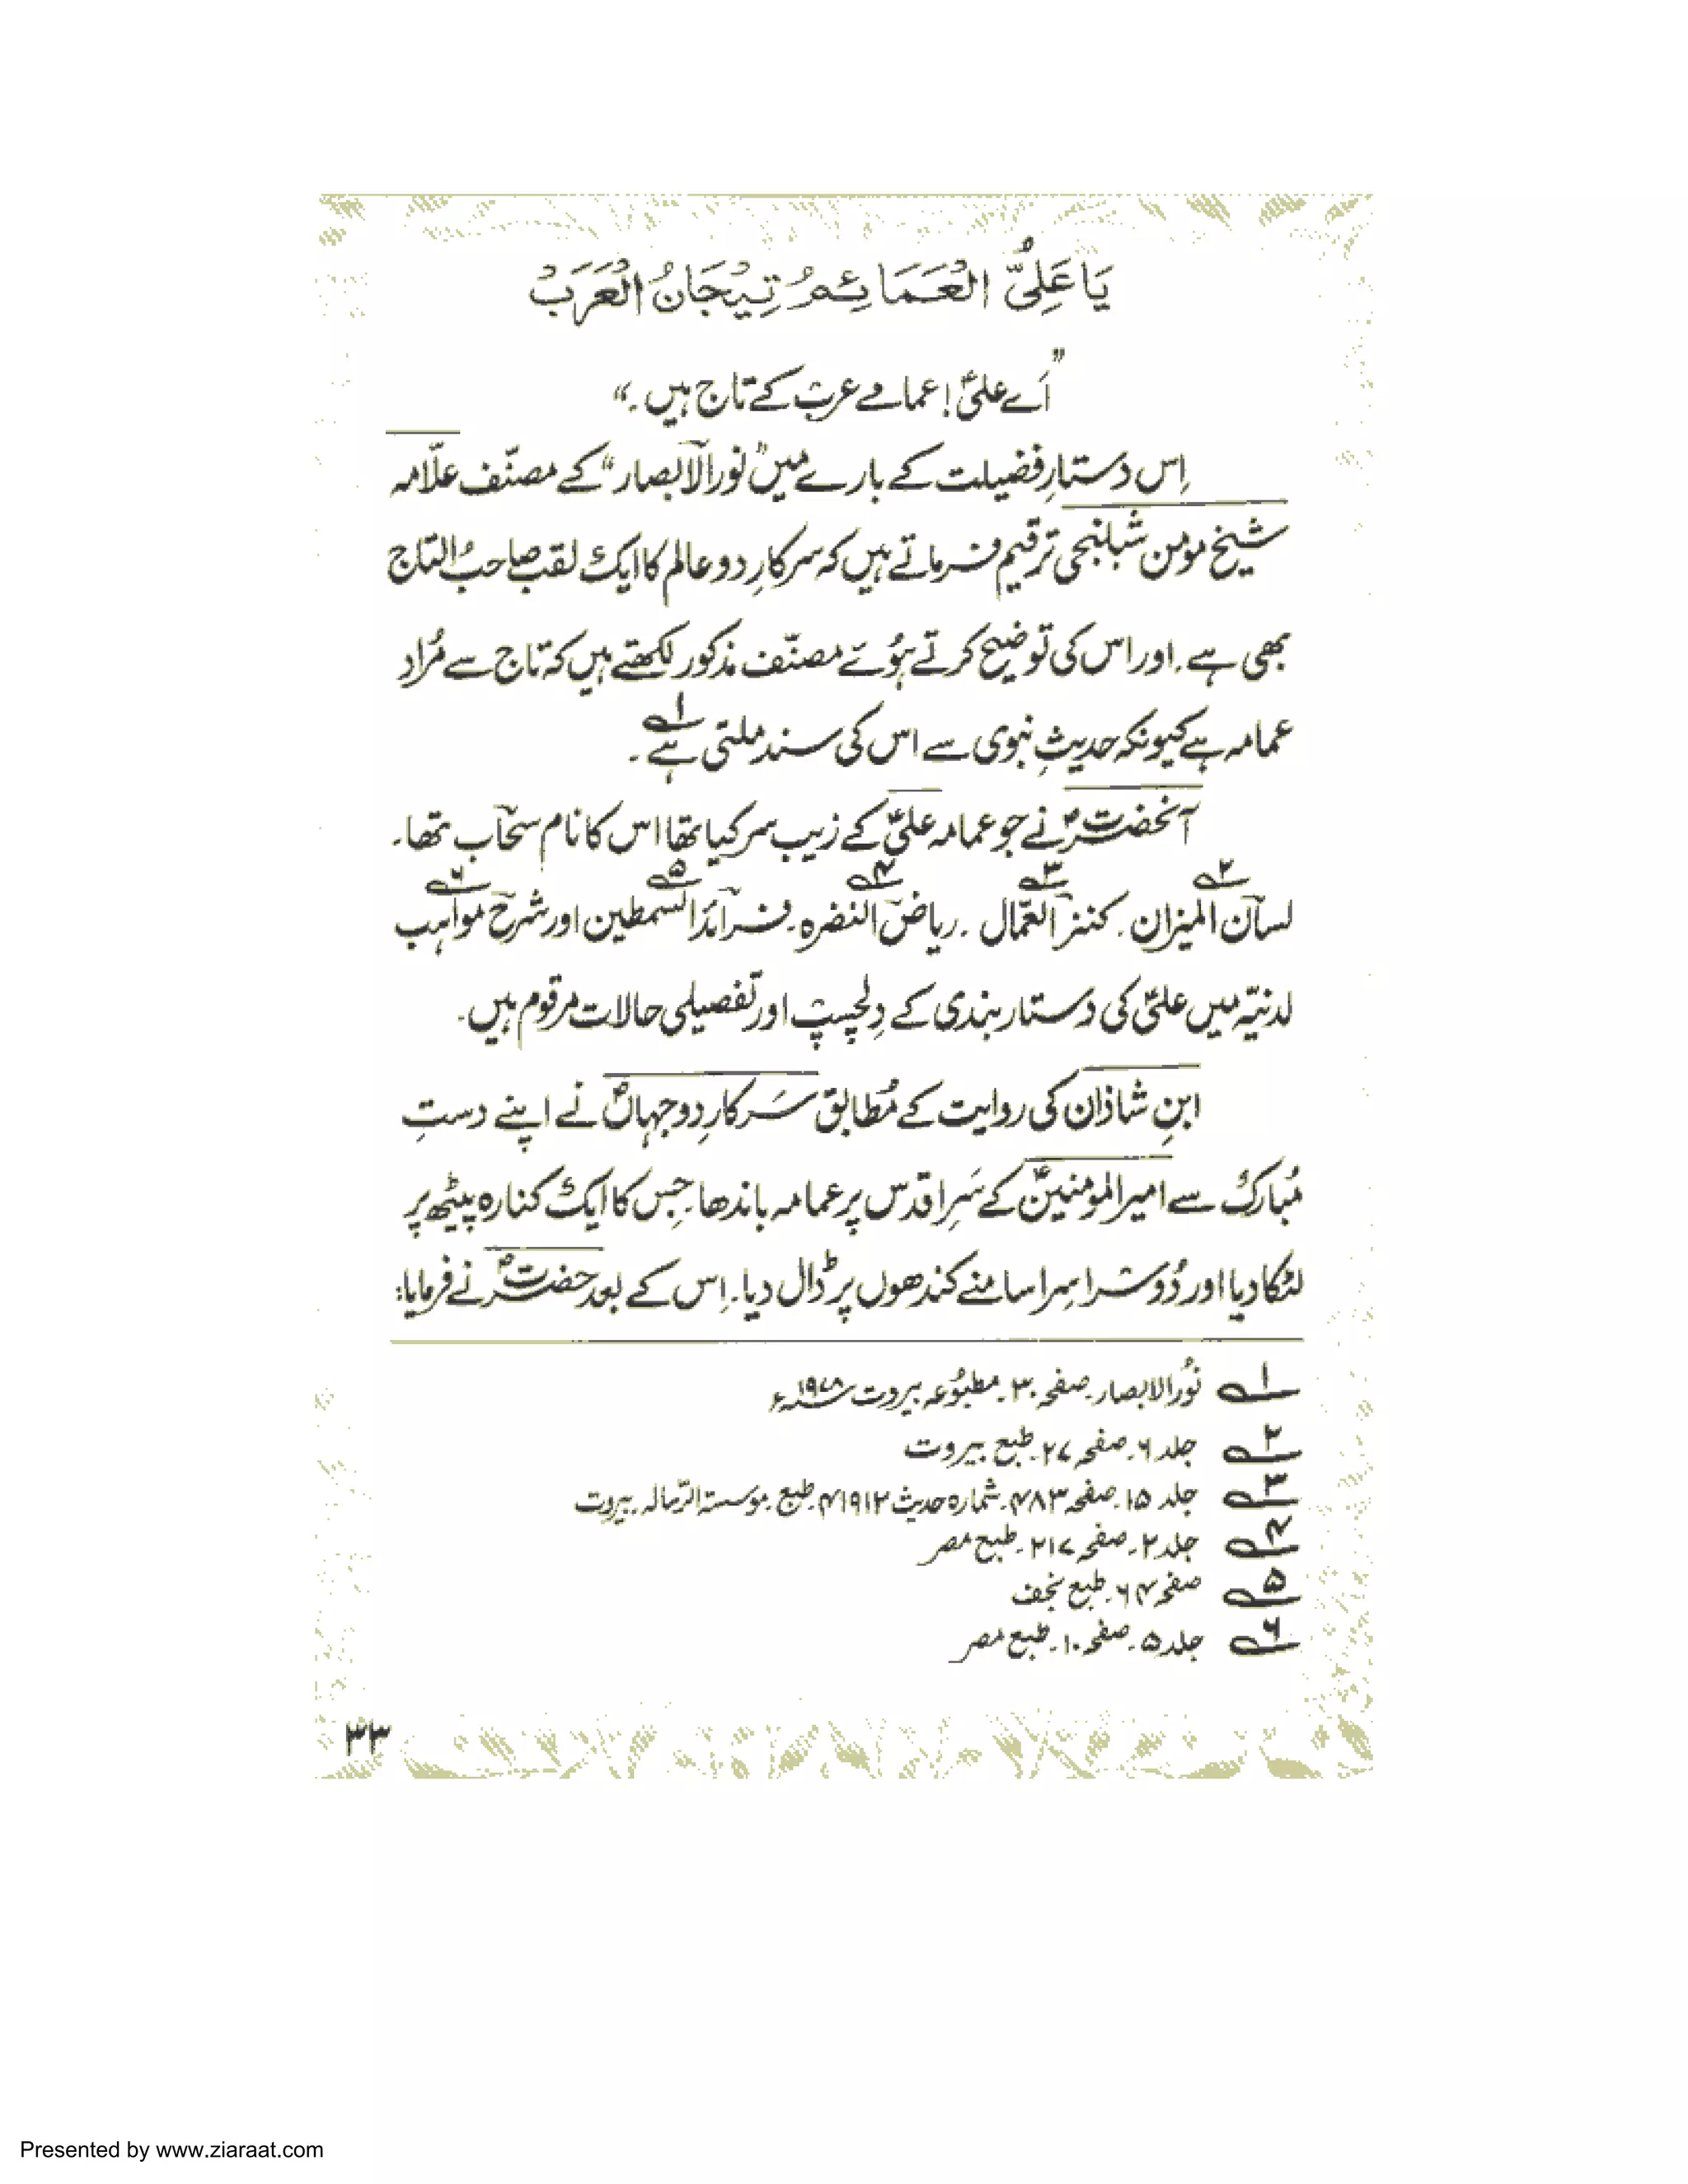 یَا عَلِیُّ الْعَمَائِمُ تِیْجَانُ الْعَرَبْ
”اَے علیؑ! عمامے عرب کے تاج ہیں۔“
اِس دستارِ فضیلت کے بارے میں ”نور الابصار“ کے مصنّف علّامہ
شیخ مومن شبلنجی ترقیم فرماتے ہیں کہ سرکارِ دو عالم کا ایک لقب صاحبُ التاج
بھی ہے۔ اور اس کی توضیح کرتے ہوُئے مصنّف مذکور لکھتے ہیں کہ تاج سے مُراد
عمامہ ہے کیونکہ حدیثِ نبوی سے اس کی سند ملتی ہے۱۔
آنحضرتؐ نے جو عمامہ علیؑ کے زیب سر کیا تھا اس کا نام سحاب تھا۔
لسان المیزان۲۔ کنز العمّال۳۔ ریاض النضرہ۴۔ فرائد السمطین۵ اور شرح مواہب۶
لدنیّہ میں علیؑ کی دستار بندی کے دِلچسپ اور تفصیلی حالات مرقوم ہیں۔
ابنِ شاذان کی روایت کے مُطابق سَرکارِ دو جہاںؐ نے اپنے دستِ
مُبارک سے امیر المومنینؑ کے سَرِ اقدس پر عمامہ باندھا، جِس کا ایک کنارہ پیٹھ پر
لٹکا دیا اور دُوسرا سِرا سامنے کندھوں پر ڈال دیا۔ اِس کے بعد حضرتؐ نے فرمایا:
۱ نوُر الابصار۔ صفحہ ۳۰۔ مطبوُعہ بیروت ۱۹۷۸ء
۲ جلد ۶۔ صفحہ ۲۷۔ طبع بیروت
۳ جلد ۱۵۔ صفحہ ۴۸۳۔ شمارہ حدیث ۴۱۹۱۲۔ طبع۔ موسسۃ الرّسالہ۔ بیروت
۴ جلد ۲۔ صفحہ ۲۱۷۔ طبع مصر
۵ صفحہ ۶۴۔ طبع نجف
۶ جلد ۵۔ صفحہ ۱۰۔ طبع مصر
۳۳
Presented by www.ziaraat.com